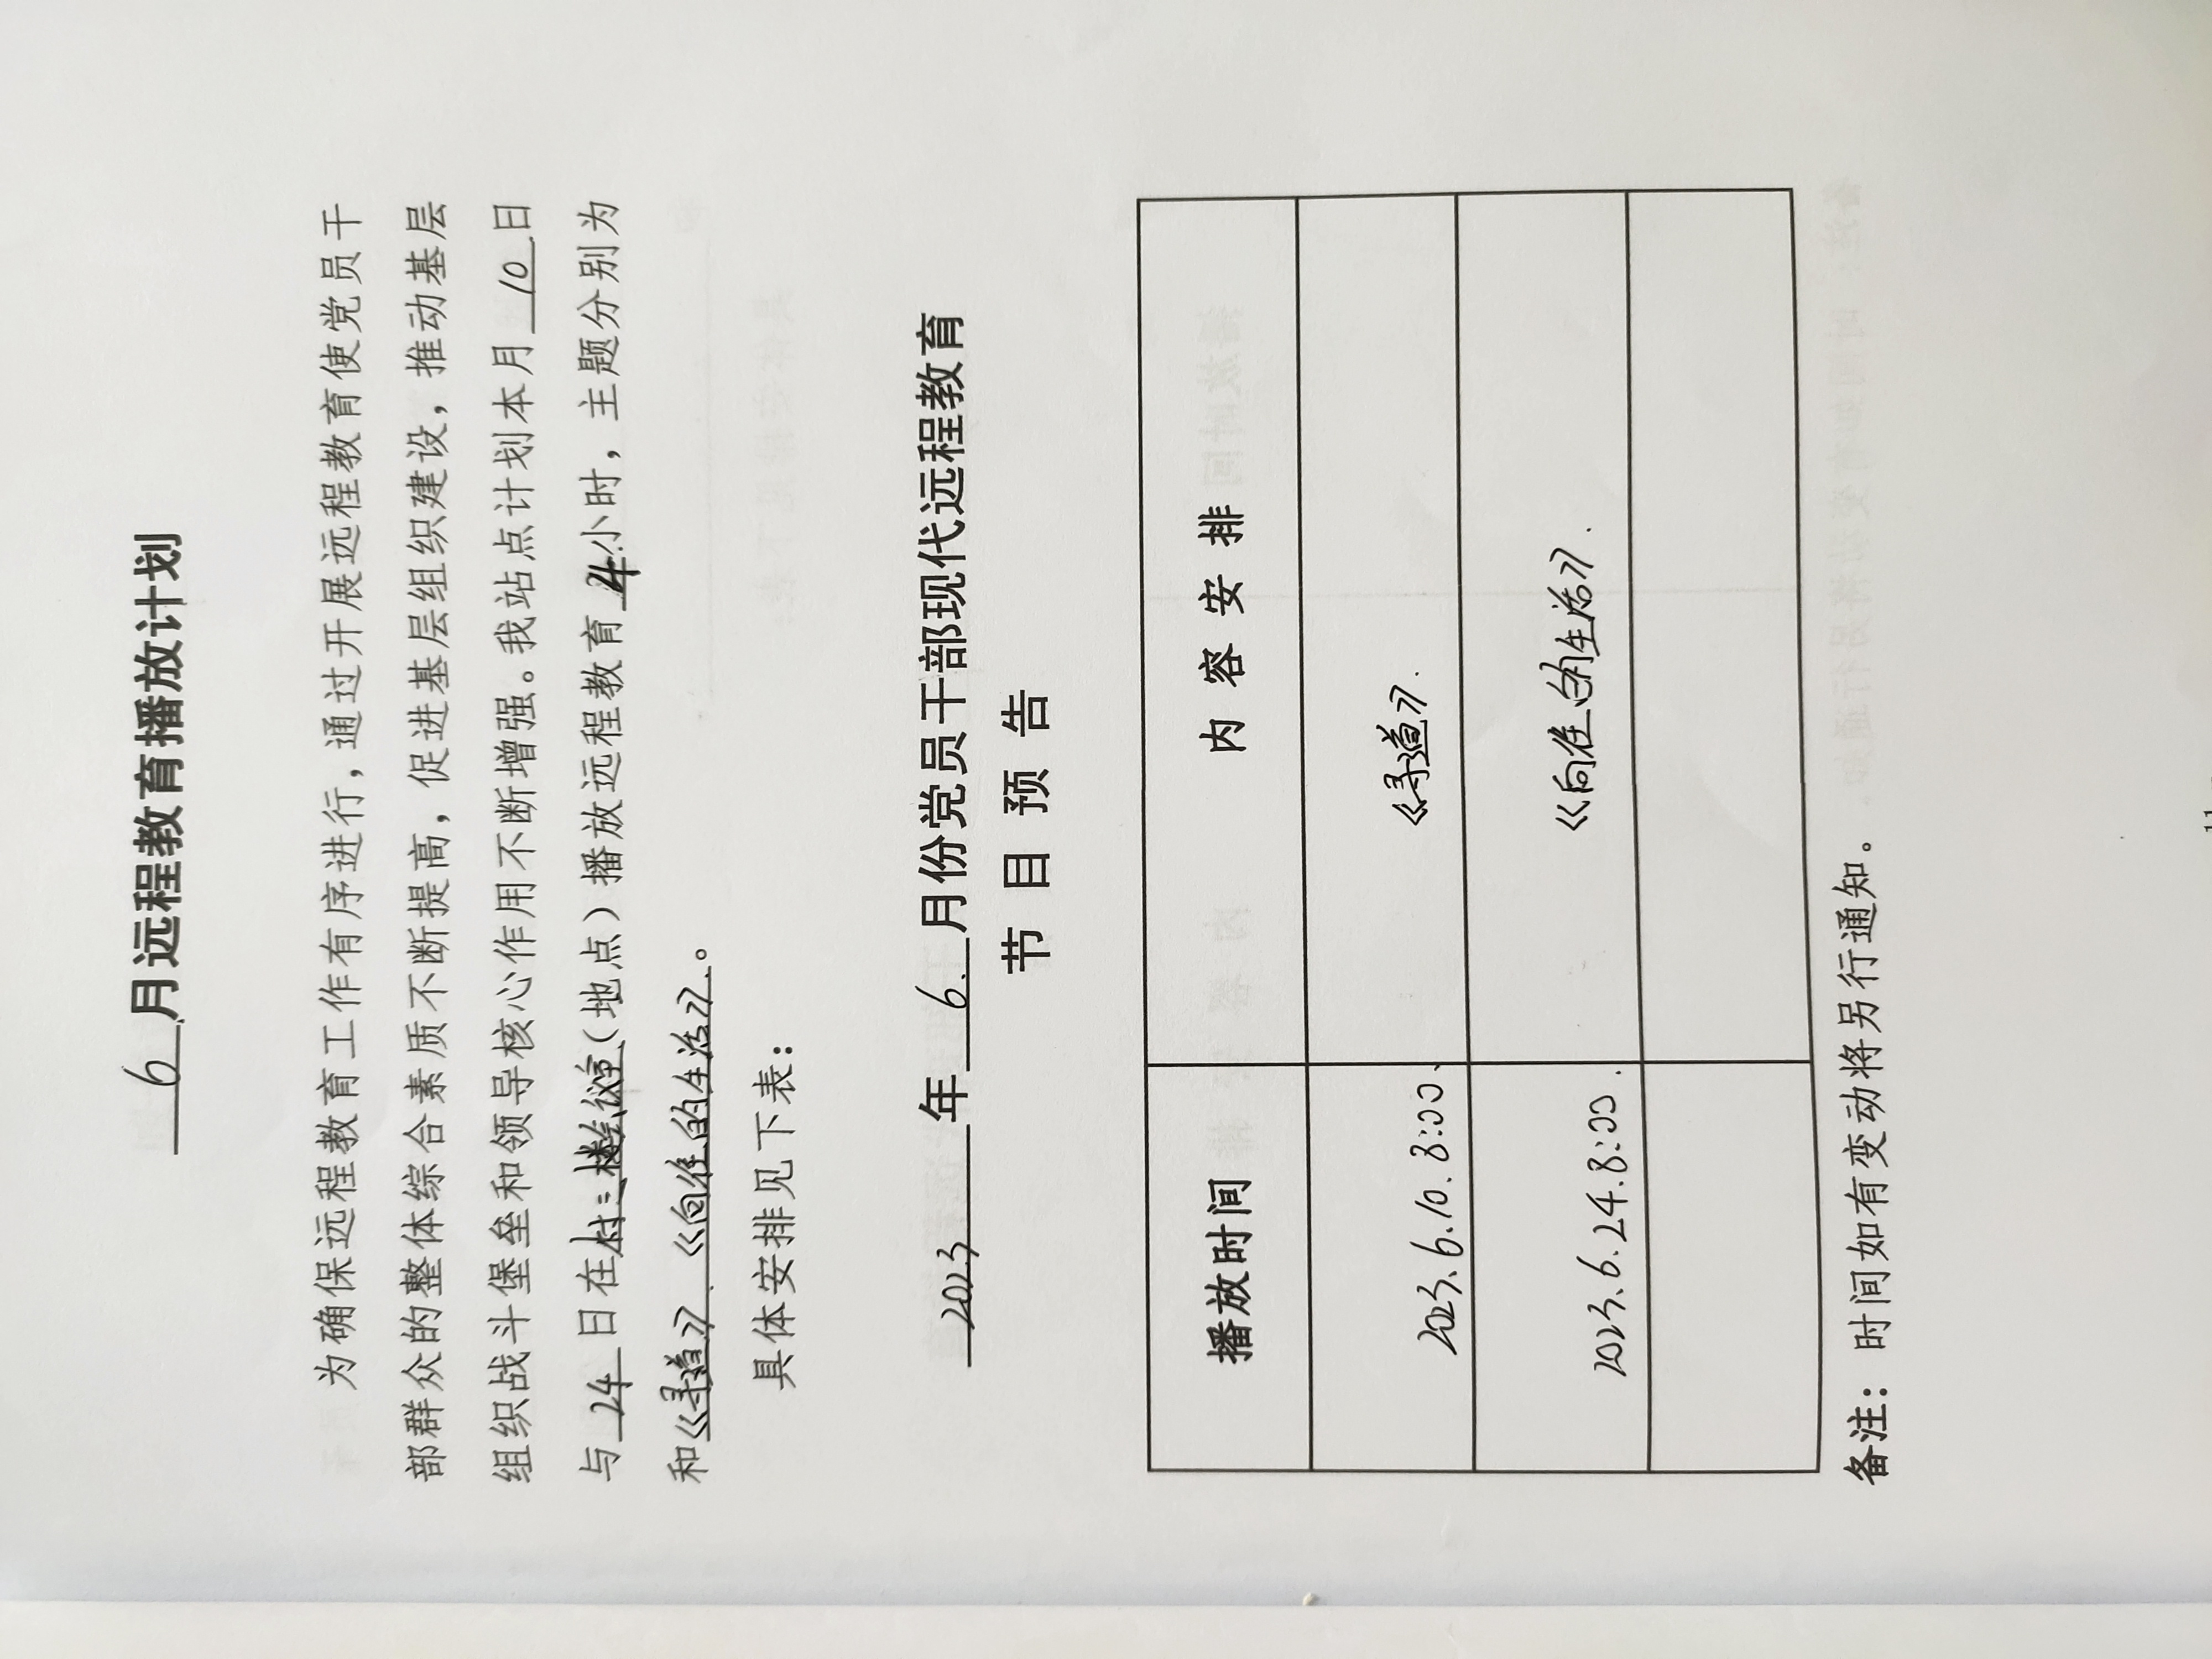 6 月远程教育播放计划
为确保远程教育工作有序进行，通过开展远程教育使党员干
部群众的整体综合素质不断提高，促进基层组织建设，推动基层
组织战斗堡垒和领导核心作用不断增强。我站点计划本月 10 日
与 24 日在村三楼会议室（地点）播放远程教育 4 小时，主题分别为
和《寻道》《向往的生活》。
具体安排见下表：
2023 年 6 月份党员干部现代远程教育
节目预告
播放时间 内容安排
2023.6.10.8:00 《寻道》.
2023.6.24.8:00. 《向往的生活》.
备注：时间如有变动将另行通知。